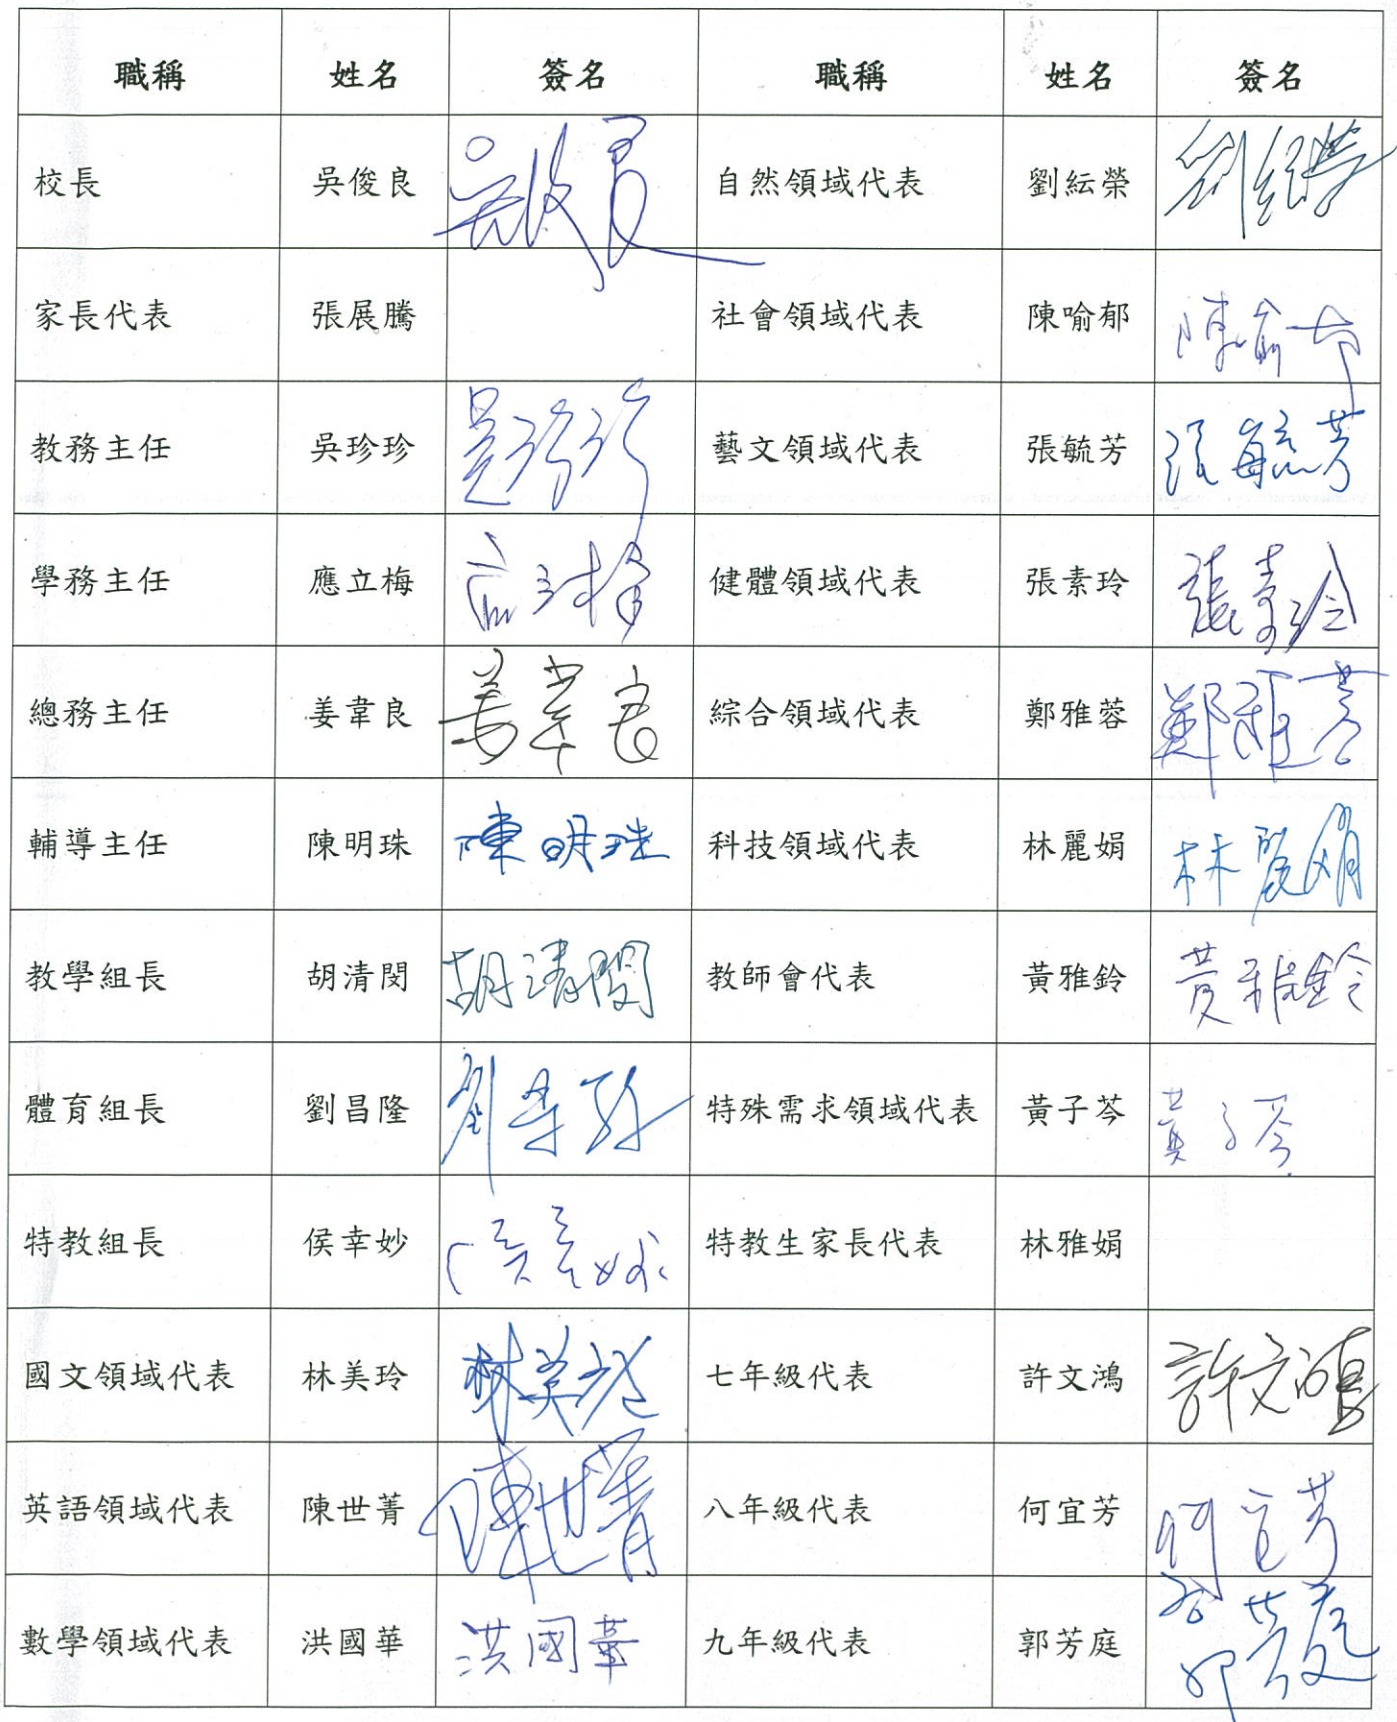 職稱 姓名 簽名 職稱 姓名 簽名
校長 吳俊良 吳俊良 自然領域代表 劉紜榮 劉紜榮
家長代表 張展騰 社會領域代表 陳喻郁 陳喻郁
教務主任 吳珍珍 吳珍珍 藝文領域代表 張毓芳 張毓芳
學務主任 應立梅 應立梅 健體領域代表 張素玲 張素玲
總務主任 姜韋良 姜韋良 綜合領域代表 鄭雅蓉 鄭雅蓉
輔導主任 陳明珠 陳明珠 科技領域代表 林麗娟 林麗娟
教學組長 胡清閔 胡清閔 教師會代表 黃雅鈴 黃雅鈴
體育組長 劉昌隆 特殊需求領域代表 黃子芩 黃子芩
特教組長 侯幸妙 侯幸妙 特教生家長代表 林雅娟
國文領域代表 林美玲 林美玲 七年級代表 許文鴻 許文鴻
英語領域代表 陳世菁 陳世菁 八年級代表 何宜芳 何宜芳
數學領域代表 洪國華 洪國華 九年級代表 郭芳庭